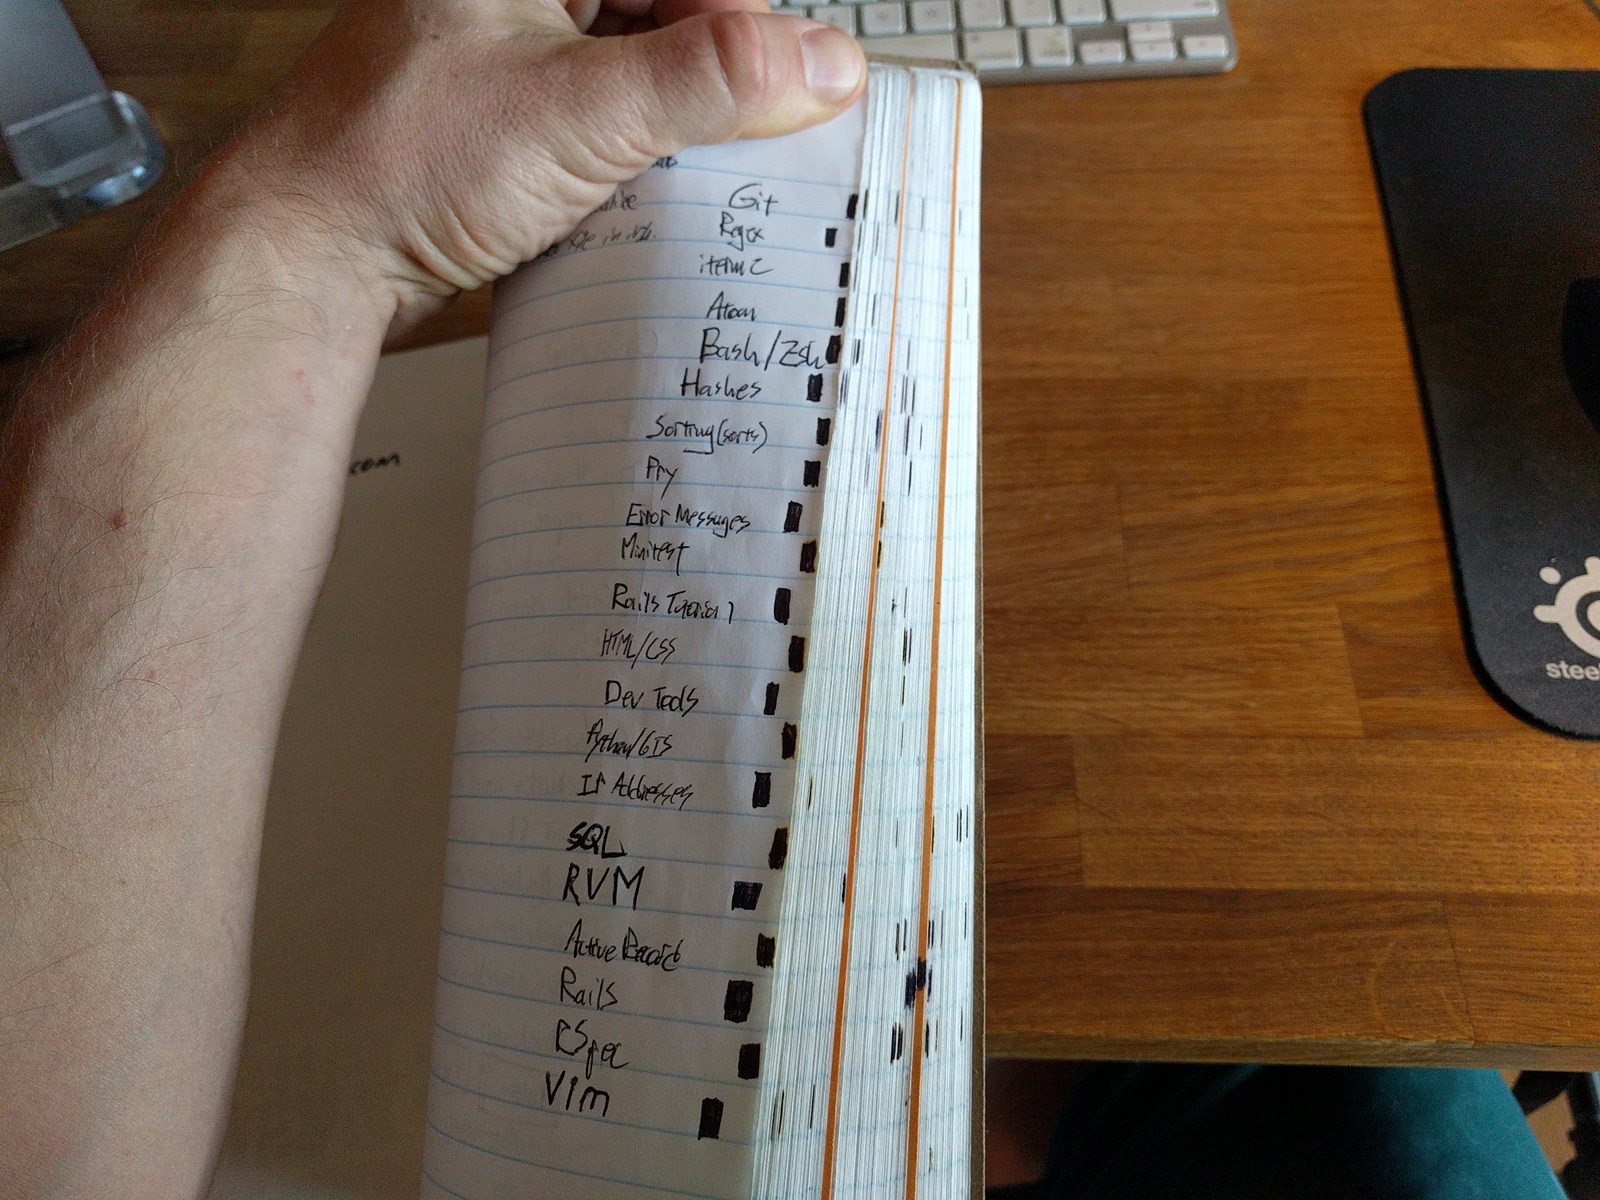 Git
Regex
iterm2
Atom
Bash/Zsh
Hashes
Sorting (sorts)
Pry
Error Messages
Minitest
Rails Tutorial
HTML/CSS
Dev Tools
Python/GIS
IP Addresses
SQL
RVM
Active Record
Rails
RSpec
Vim
.com
stee